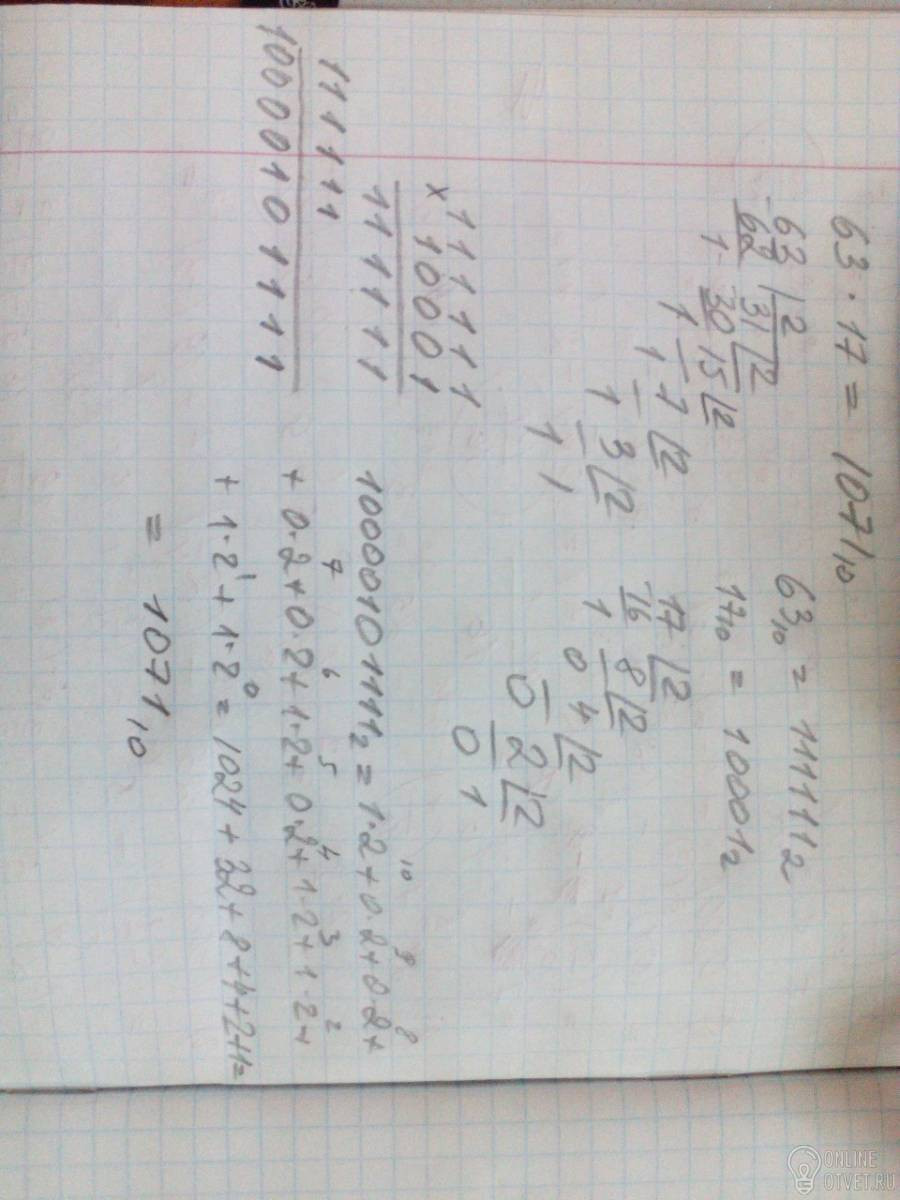 63 · 17 = 1071₁₀
63₁₀ = 111111₂
17₁₀ = 10001₂
63 | 2
62 31 | 2
1 30 15 | 2
1 7 | 2
1 3 | 2
1 1
1
17 | 2
16 8 | 2
1 0 4 | 2
0 2 | 2
0 1
× 111111
10001
111111
111111
10000101111
10000101111₂ = 1·2¹⁰ + 0·2⁹ + 0·2⁸ +
+ 0·2⁷ + 0·2⁶ + 1·2⁵ + 0·2⁴ + 1·2³ + 1·2² +
+ 1·2¹ + 1·2⁰ = 1024 + 32 + 8 + 4 + 2 + 1 =
= 1071₁₀
ONLINE
OTVET.RU